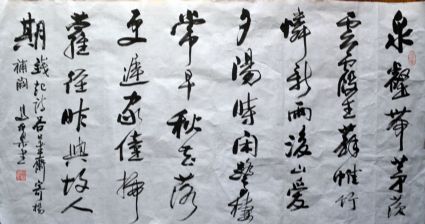 泉壑帶茅茨
雲霞生薜帷竹
憐新雨後山愛
夕陽時闲鹭棲
常早秋花落
更遲家僮掃
蘿徑昨與故人
期 錢起詩谷口書齋寄楊
補闕